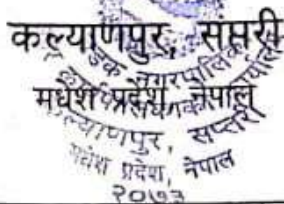 कल्याणपुर, सप्तरी
मधेश प्रदेश, नेपाल
नगरपालिका
कल्याणपुर, सप्तरी
मधेश प्रदेश, नेपाल
२०७३